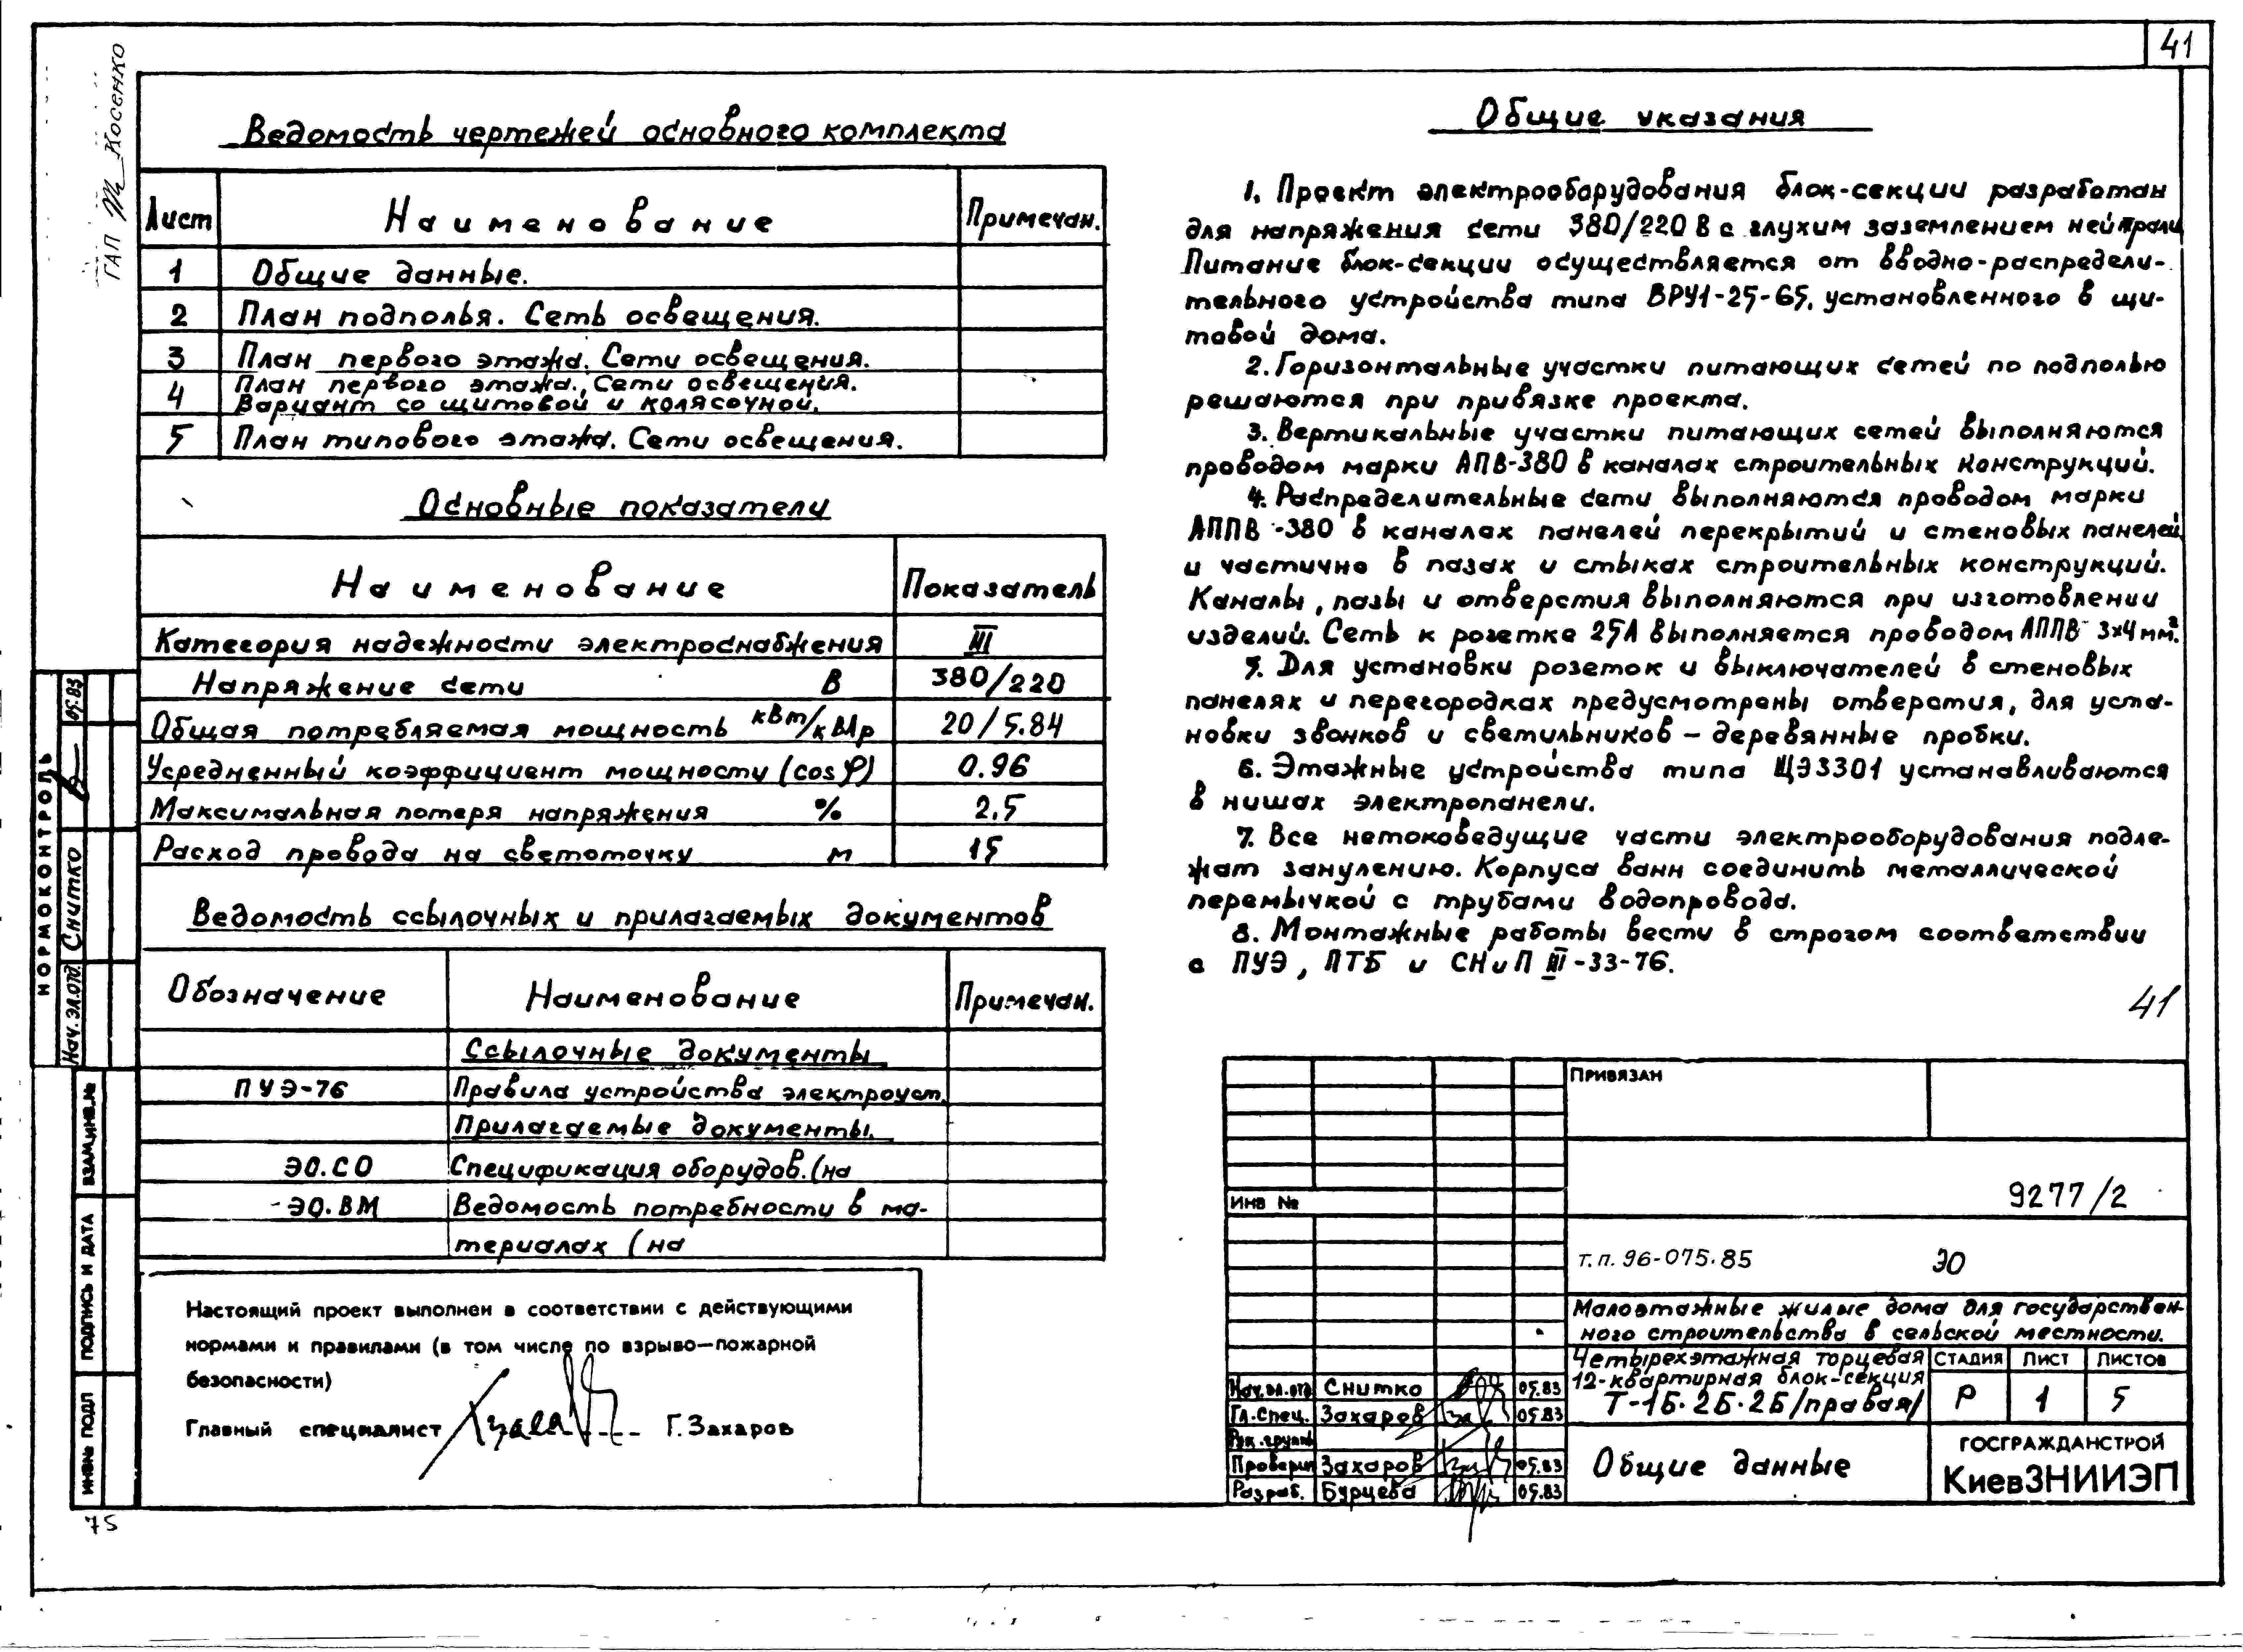 41
ГАП Косенко
Ведомость чертежей основного комплекта
Лист Наименование Примечан.
1 Общие данные.
2 План подполья. Сеть освещения.
3 План первого этажа. Сети освещения.
4 План первого этажа. Сети освещения.
Вариант со щитовой и колясочной.
5 План типового этажа. Сети освещения.
Основные показатели
Наименование Показатель
Категория надежности электроснабжения III
Напряжение сети В 380/220
Общая потребляемая мощность кВт/кВАр 20/5.84
Усредненный коэффициент мощности (cos φ) 0.96
Максимальная потеря напряжения % 2,5
Расход провода на светоточку м 15
Ведомость ссылочных и прилагаемых документов
Обозначение Наименование Примечан.
Ссылочные документы
ПУЭ-76 Правила устройства электроуст.
Прилагаемые документы.
ЭО.СО Спецификация оборудов. (на
-ЭО.ВМ Ведомость потребности в ма-
териалах (на
Настоящий проект выполнен в соответствии с действующими
нормами и правилами (в том числе по взрыво-пожарной
безопасности)
Главный специалист Г. Захаров
Общие указания
1. Проект электрооборудования блок-секции разработан
для напряжения сети 380/220 В с глухим заземлением нейтрали
Питание блок-секции осуществляется от вводно-распредели-
тельного устройства типа ВРУ1-25-65, установленного в щи-
товой дома.
2. Горизонтальные участки питающих сетей по подполью
решаются при привязке проекта.
3. Вертикальные участки питающих сетей выполняются
проводом марки АПВ-380 в каналах строительных конструкций.
4. Распределительные сети выполняются проводом марки
АППВ-380 в каналах панелей перекрытий и стеновых панелей
и частично в пазах и стыках строительных конструкций.
Каналы, пазы и отверстия выполняются при изготовлении
изделий. Сеть к розетке 25А выполняется проводом АППВ 3х4мм².
5. Для установки розеток и выключателей в стеновых
панелях и перегородках предусмотрены отверстия, для уста-
новки звонков и светильников – деревянные пробки.
6. Этажные устройства типа ЩЭ3301 устанавливаются
в нишах электропанели.
7. Все нетоковедущие части электрооборудования подле-
жат занулению. Корпуса ванн соединить металлической
перемычкой с трубами водопровода.
8. Монтажные работы вести в строгом соответствии
с ПУЭ, ПТБ и СНиП III-33-76.
41
Привязан
Инв №
9277/2
т.п. 96-075.85 ЭО
Малоэтажные жилые дома для государствен-
ного строительства в сельской местности.
Четырехэтажная торцевая
12-квартирная блок-секция
Т-1Б.2Б.2Б/правая/
Стадия Лист Листов
Р 1 5
Нач.эл.отд Снитко 05.83
Гл.спец. Захаров 05.83
Рук.группы
Проверил Захаров 05.83
Разраб. Бурцева 05.83
Общие данные
ГОСГРАЖДАНСТРОЙ
КиевЗНИИЭП
НОРМОКОНТРОЛЬ
Нач.эл.отд. Снитко 05.83
ВЗАМ.ИНВ.№
ПОДПИСЬ И ДАТА
ИНВ№ ПОДЛ
75